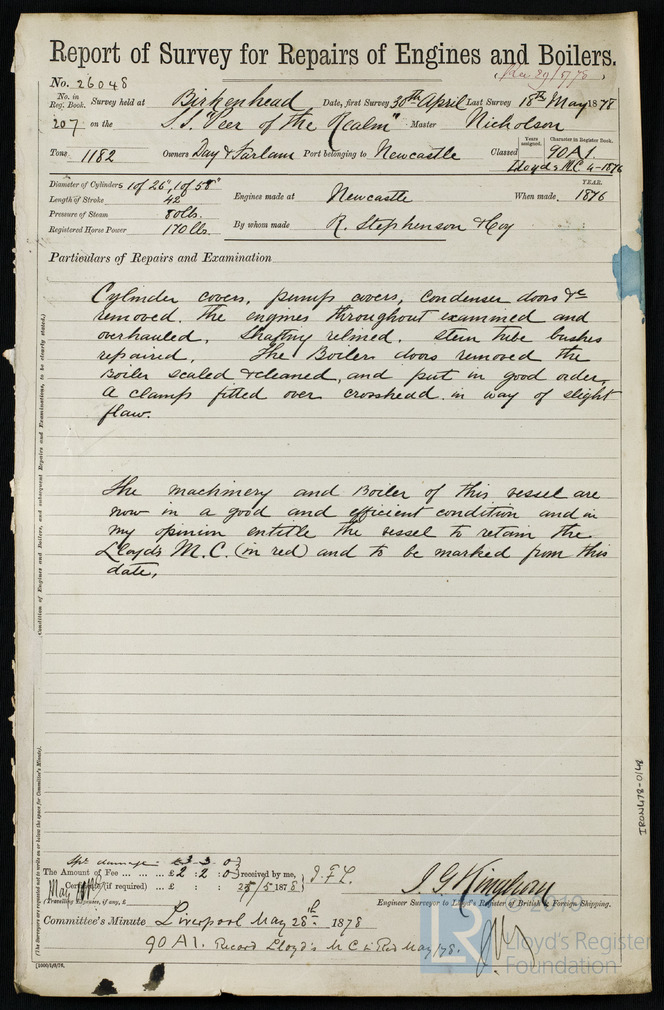 Report of Survey for Repairs of Engines and Boilers.
No. 26048
Rec 29/5/78
No. in Reg. Book. Survey held at Birkenhead Date, first Survey 30th April Last Survey 18th May 1878
207 on the S.S. "Peer of the Realm" Master Nicholson
Tons 1182 Owners Day & Farlam Port belonging to Newcastle Classed Years assigned. Character in Register Book. 90A1.
Lloyds M.C. 4-1876
Diameter of Cylinders 1 of 26", 1 of 58"
Length of Stroke 42" Engines made at Newcastle When made. YEAR. 1876
Pressure of Steam 80lbs.
Registered Horse Power 170 lbs. By whom made R. Stephenson & Coy
Particulars of Repairs and Examination
Cylinder covers, pumps covers, condenser doors &c
removed. the engines throughout examined and
overhauled, shafting relined. stern tube bushes
repaired. The Boilers doors removed the
Boiler scaled & cleaned, and put in good order,
a clamp fitted over crosshead in way of slight
flaw.
The machinery and Boiler of this vessel are
now in a good and efficient condition and in
my opinion entitle the vessel to retain the
Lloyds M.C. (in red) and to be marked from this
date,
(The Surveyors are requested not to write on or below the space for Committee's Minute).
Condition of Engines and Boilers, and subsequent Repairs and Examinations, to be clearly stated.)
IRON478-0148
Spl damage £3 - 3 .
The Amount of Fee ... ... ... £ 2 : 2 : 0 received by me,
Certificate (if required) ... £ : : 25/5 1878
(Travelling Expenses, if any, £
J. G. Kinghorn
Engineer Surveyor to Lloyd's Register of British & Foreign Shipping.
Committee's Minute Liverpool May 28th 1878
90A1. Record Lloyd's M C in Red May/78.
© 2019
LR
Lloyd's Register
Foundation